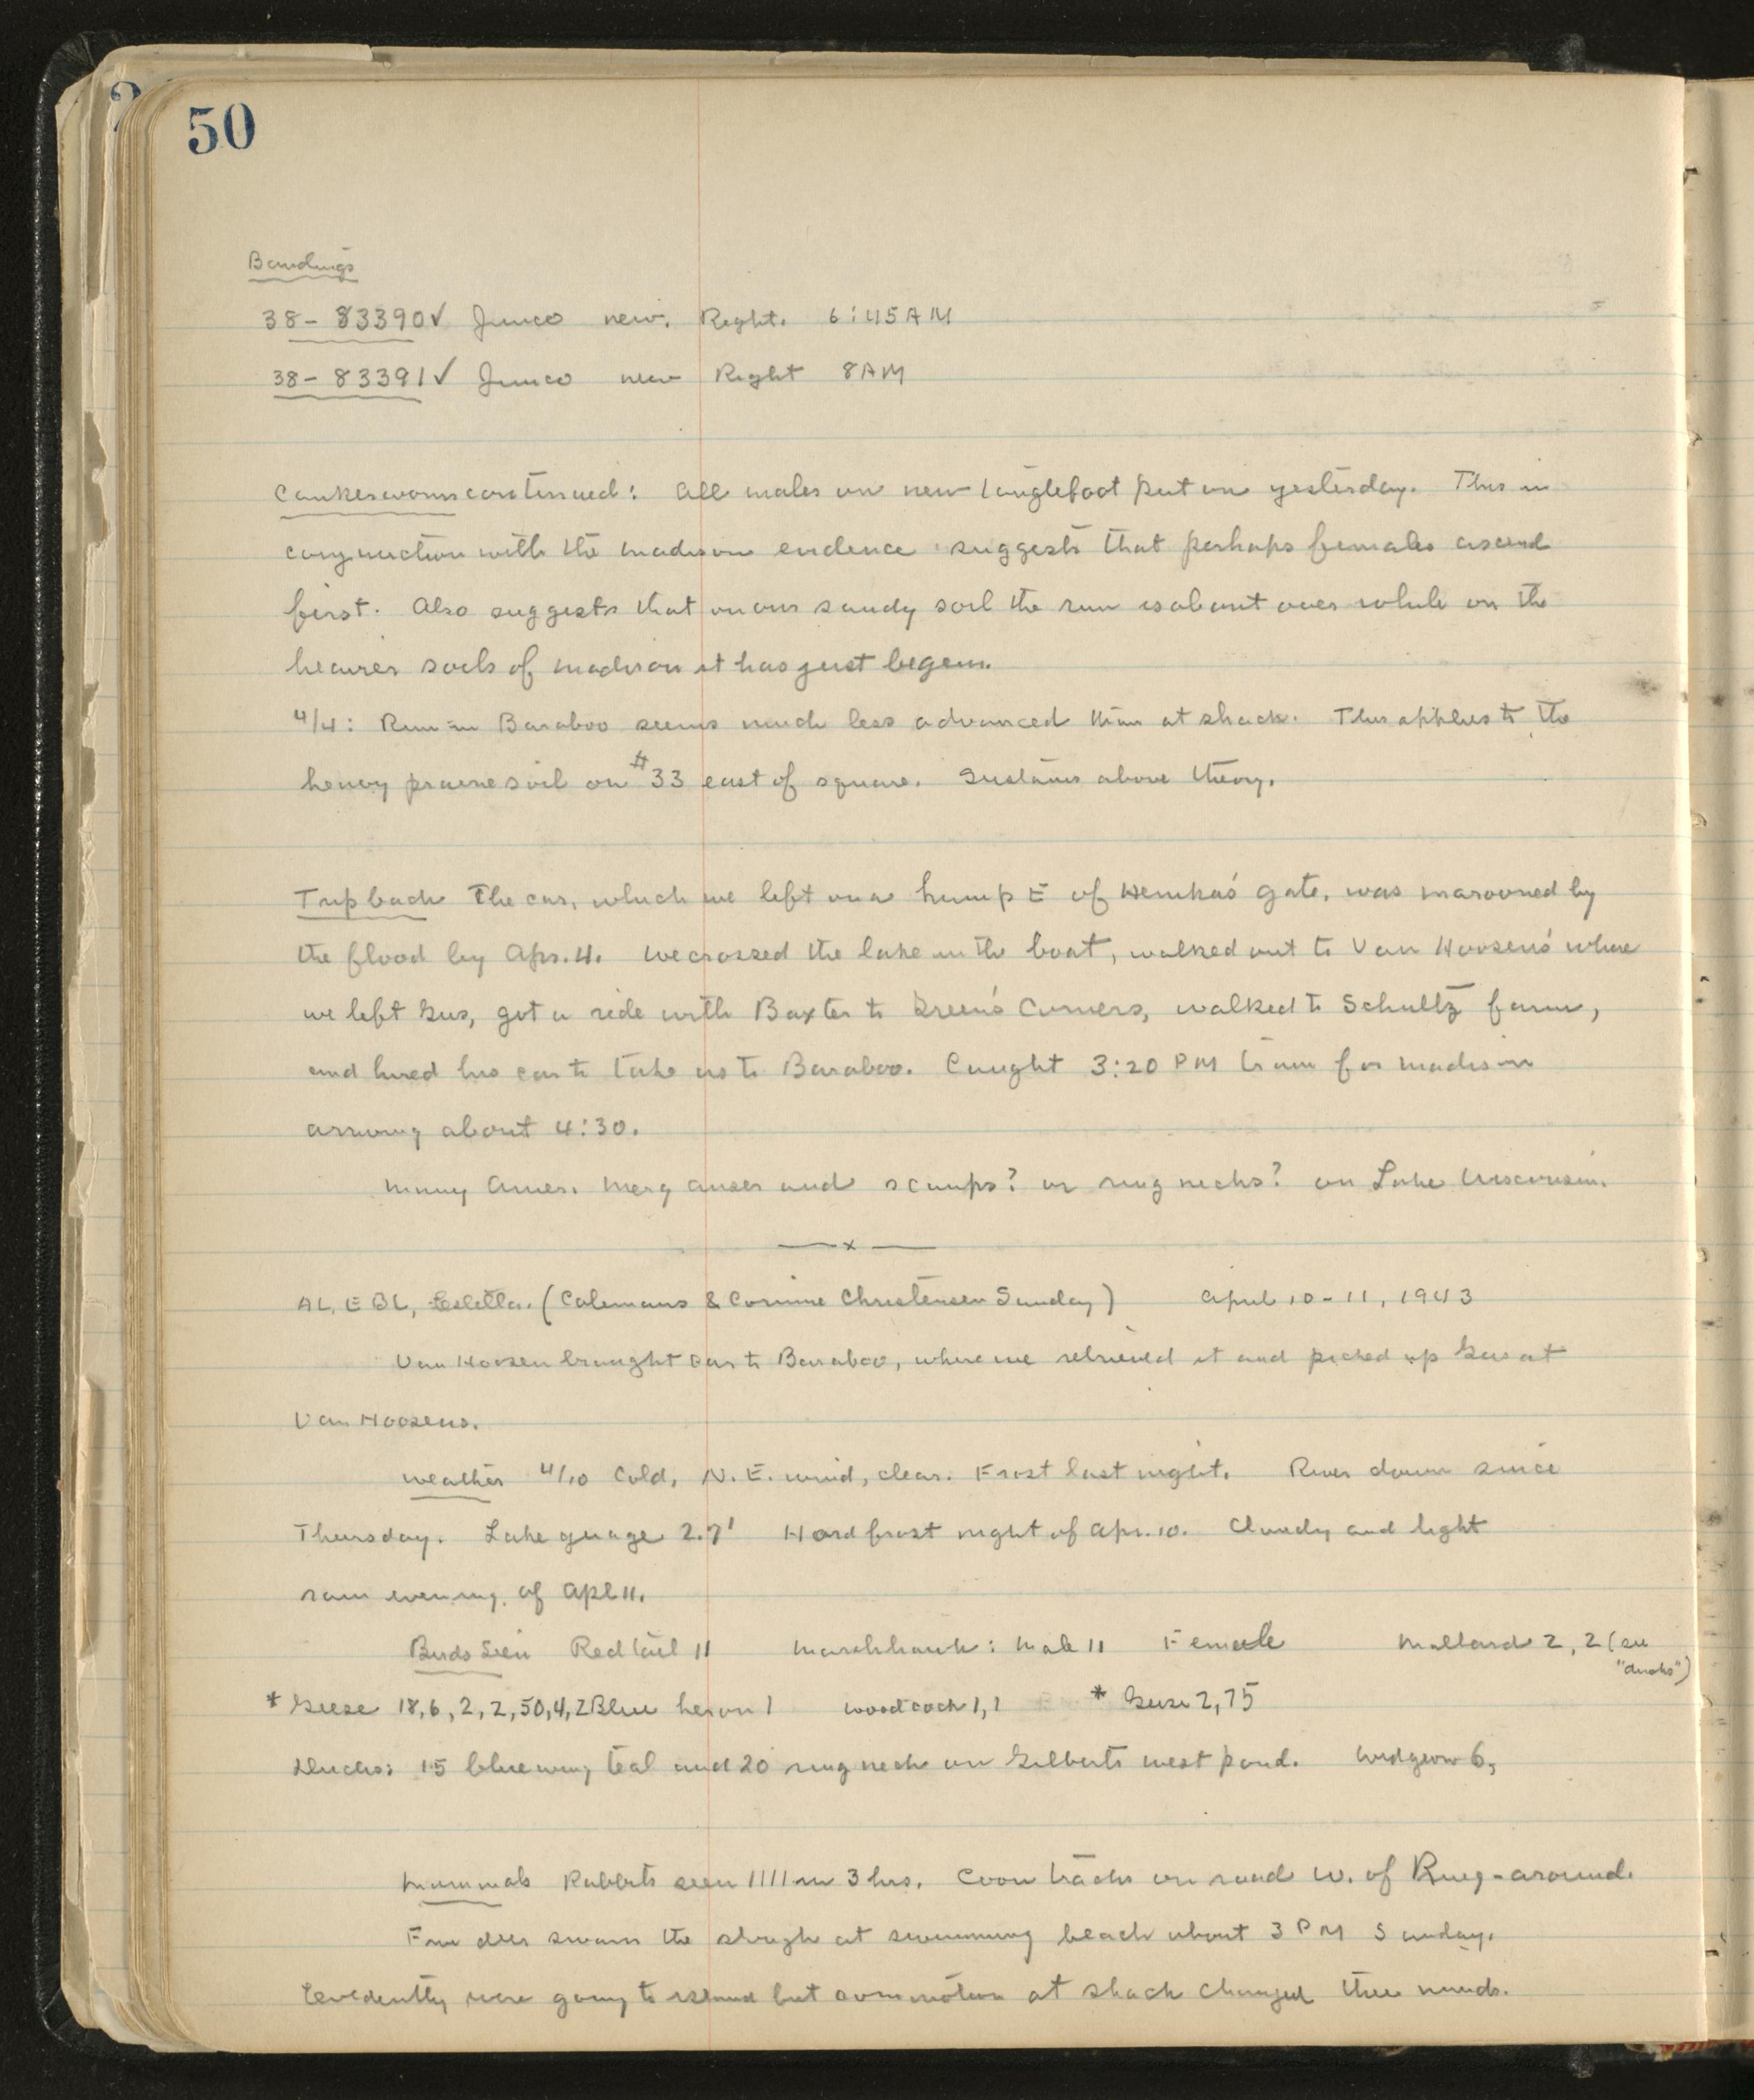 50
Bandings
38-83390√ Junco new. Right. 6:45AM
38-83391√ Junco new Right 8AM
Cankerworms continued: All males on new tanglefoot put on yesterday. This in
conjunction with the Madison evidence suggests that perhaps females ascend
first. Also suggests that on our sandy soil the run is about over while on the
heavier soils of Madison it has just begun.
4/4: Run in Baraboo seems much less advanced than at shack. This applies to the
heavy prairie soil on #33 east of square. Sustains above theory.
Trip back The car, which we left on a hump E of Hemka's gate, was marooned by
the flood by Apr. 4. We crossed the lake in the boat, walked out to Van Hoosens' where
we left Gus, got a ride with Baxter to Green's Corners, walked to Schultz farm,
and hired his car to take us to Baraboo. Caught 3:20 PM train for Madison
arriving about 4:30.
Many Amer. Mergansers and scaups? or ringnecks? on Lake Wisconsin.
—x—
AL, EBL, Estella. (Colemans & Corinne Christensen Sunday) April 10-11, 1943
Van Hoosen brought car to Baraboo, where we retrieved it and picked up Gus at
Van Hoosens.
Weather 4/10 Cold, N.E. wind, clear. Frost last night. River down since
Thursday. Lake guage 2.7' Hard frost night of Apr. 10. Cloudy and light
rain evening of Apl 11.
Birds Seen Redtail 11 Marshhawk: Male 11 Female Mallard 2, 2 (see
"ducks")
* Geese 18, 6, 2, 2, 50, 4, 2 Blue heron 1 Woodcock 1, 1 * Geese 2, 75
Ducks: 15 bluewing teal and 20 ringneck on Gilberts west pond. Widgeon 6,
Mammals Rabbits seen 1111 in 3 hrs. Coon tracks on road W. of Ring-around.
Five deer swam the slough at swimming beach about 3 PM Sunday.
Evidently were going to island but commotion at shack changed their minds.